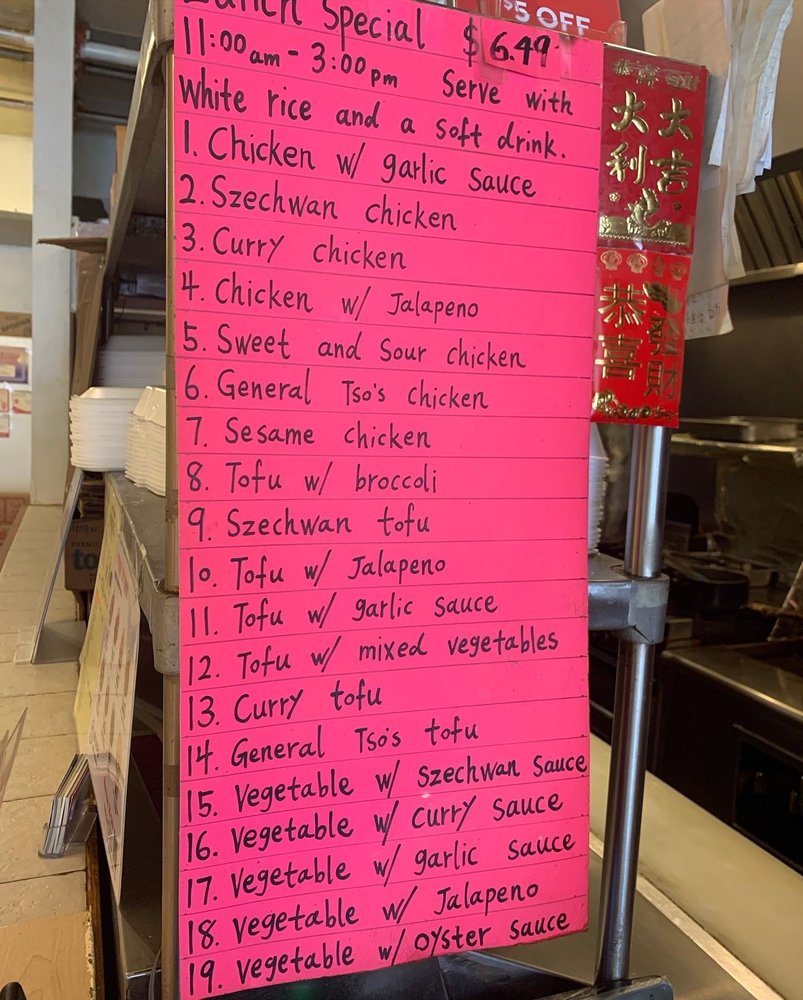 Lunch Special $6.49
11:00am - 3:00pm Serve with
White rice and a soft drink.
1. Chicken w/ garlic sauce
2. Szechwan chicken
3. Curry chicken
4. Chicken w/ Jalapeno
5. Sweet and Sour chicken
6. General Tso's chicken
7. Sesame chicken
8. Tofu w/ broccoli
9. Szechwan tofu
10. Tofu w/ Jalapeno
11. Tofu w/ garlic sauce
12. Tofu w/ mixed vegetables
13. Curry tofu
14. General Tso's tofu
15. Vegetable w/ Szechwan Sauce
16. Vegetable w/ curry sauce
17. Vegetable w/ garlic sauce
18. Vegetable w/ Jalapeno
19. Vegetable w/ oyster sauce
$5 OFF
大吉
大利
恭喜